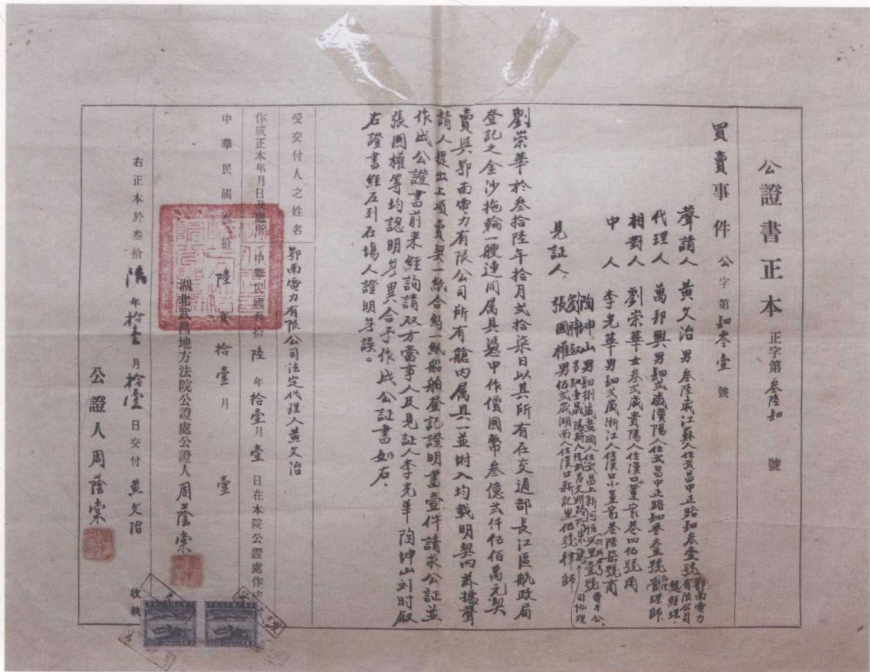 公證書正本 正字第叁陸柒號
買賣事件 公字第 號
聲請人 黃文治 男 叁陸歲江蘇人住武昌中正路 號 鄂南電力有限公司總經理
代理人 萬邦興 男 歲漢陽人住武昌中正路 號管理師
相對人 劉崇華 女 叁弍歲貴陽人住漢口董家巷四佰號商
中人 李光華 男 弍歲浙江人住漢口小董家巷陸柒號商
見証人 陶坤山 男 捌歲 人住武昌上新河 里壹號
張國權 男 歲湖南人住漢口新記里佰號律師
劉崇華於叁拾陸年拾月弍拾柒日以其所有在交通部長江區航政局
登記之金沙拖輪一艘連同属具憑中作價國幣叁億弍仟 佰萬元契
賣與鄂南電力有限公司所有艙内属具一並附入均載明契内兹據聲
請人提出上項賣契一紙合約一紙船舶登記證明書壹件請求公証並
作成公證書前来經詢請双方當事人及見証人李光華陶坤山刘时叙
張國權等均認明無異合予作成公証書如右
右證書經左列在場人證明無誤
受交付人之姓名 鄂南電力有限公司法定代理人黃文治
作成正本年月日及處所 中華民國叁拾陸年拾壹月壹日在本院公證處作成
中華民國叁拾陸年拾壹月壹
湖北武昌地方法院公證處公證人周蔭棠
右正本於叁拾陸年拾壹月拾壹日交付黃文治收執
公證人周蔭棠